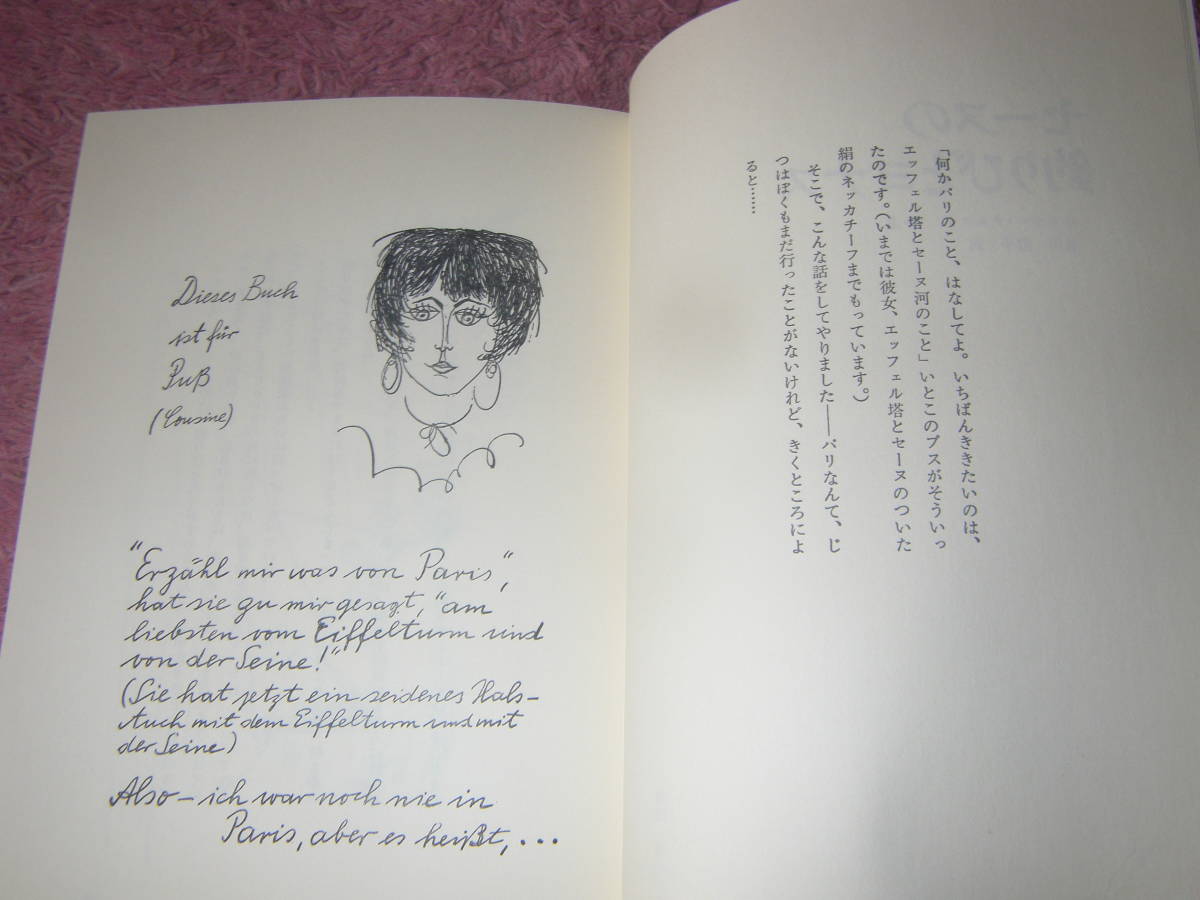 Dieses Buch
ist für
Puß
(Cousine)
"Erzähl mir was von Paris",
hat sie zu mir gesagt, "am
liebsten vom Eiffelturm und
von der Seine!"
(Sie hat jetzt ein seidenes Hals-
tuch mit dem Eiffelturm und mit
der Seine)
Also – ich war noch nie in
Paris, aber es heißt, ...
「何かパリのこと、はなしてよ。いちばんききたいのは、
エッフェル塔とセーヌ河のこと」いとこのプスがそういっ
たのです。(いまでは彼女、エッフェル塔とセーヌのついた
絹のネッカチーフまでもっています。)
そこで、こんな話をしてやりました――パリなんて、じ
つはぼくもまだ行ったことがないけれど、きくところによ
ると……
セーヌの
釣りびと